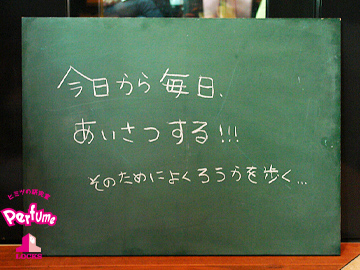 今日から毎日、
あいさつする!!!
そのためによくろうかを歩く...
ヒミツの研究室
Perfume
LOCKS